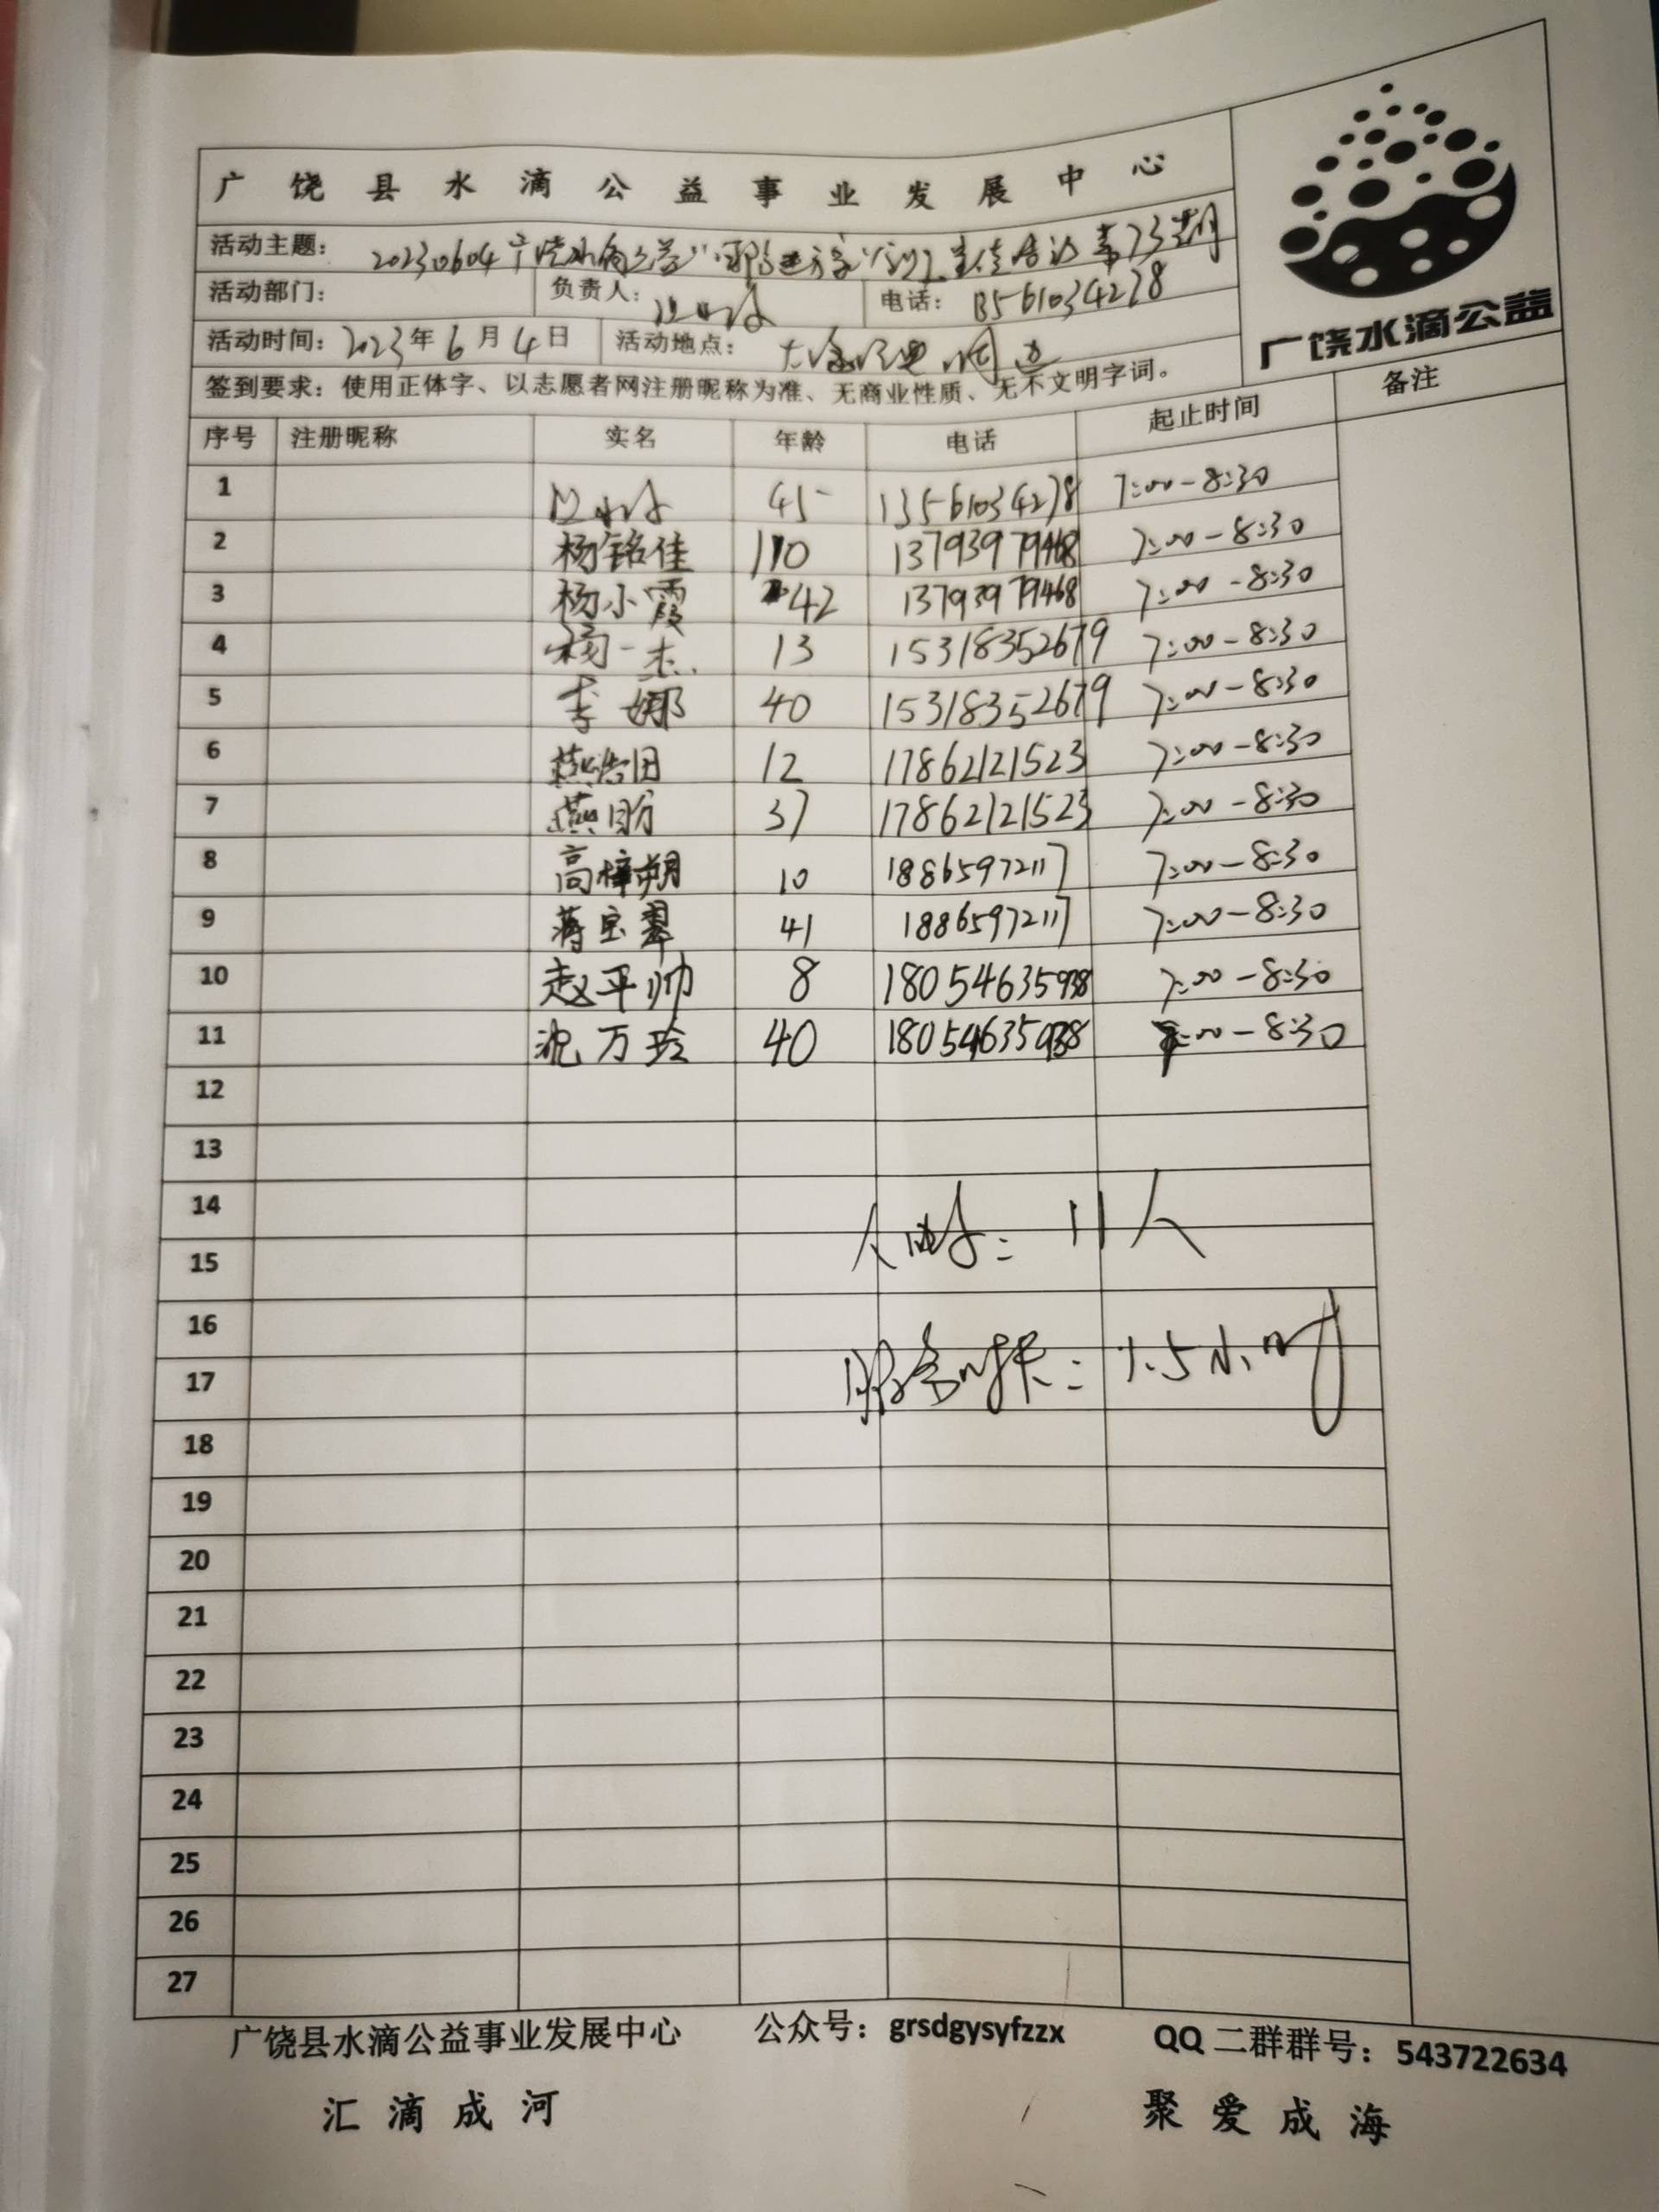 广饶县水滴公益事业发展中心
广饶水滴公益
活动主题： 20230604广饶水滴公益 第73期
活动部门： 负责人： 电话：13561034278
活动时间：2023年6月4日 活动地点： 周边
签到要求：使用正体字、以志愿者网注册昵称为准、无商业性质、无不文明字词。
序号 注册昵称 实名 年龄 电话 起止时间 备注
1 45 13561034278 7:00-8:30
2 杨铭佳 10 13793979468 7:00-8:30
3 杨小霞 42 13793979468 7:00-8:30
4 杨一杰 13 15318352679 7:00-8:30
5 李娜 40 15318352679 7:00-8:30
6 燕浩田 12 17862121523 7:00-8:30
7 燕盼 37 17862121523 7:00-8:30
8 高梓朔 10 18865972117 7:00-8:30
9 蒋宝翠 41 18865972117 7:00-8:30
10 赵平帅 8 18054635938 7:00-8:30
11 沈万玲 40 18054635938 7:00-8:30
12
13
14
人数：11人
15
16
服务时长：1.5小时
17
18
19
20
21
22
23
24
25
26
27
广饶县水滴公益事业发展中心 公众号：grsdgysyfzzx QQ二群群号：543722634
汇滴成河 聚爱成海